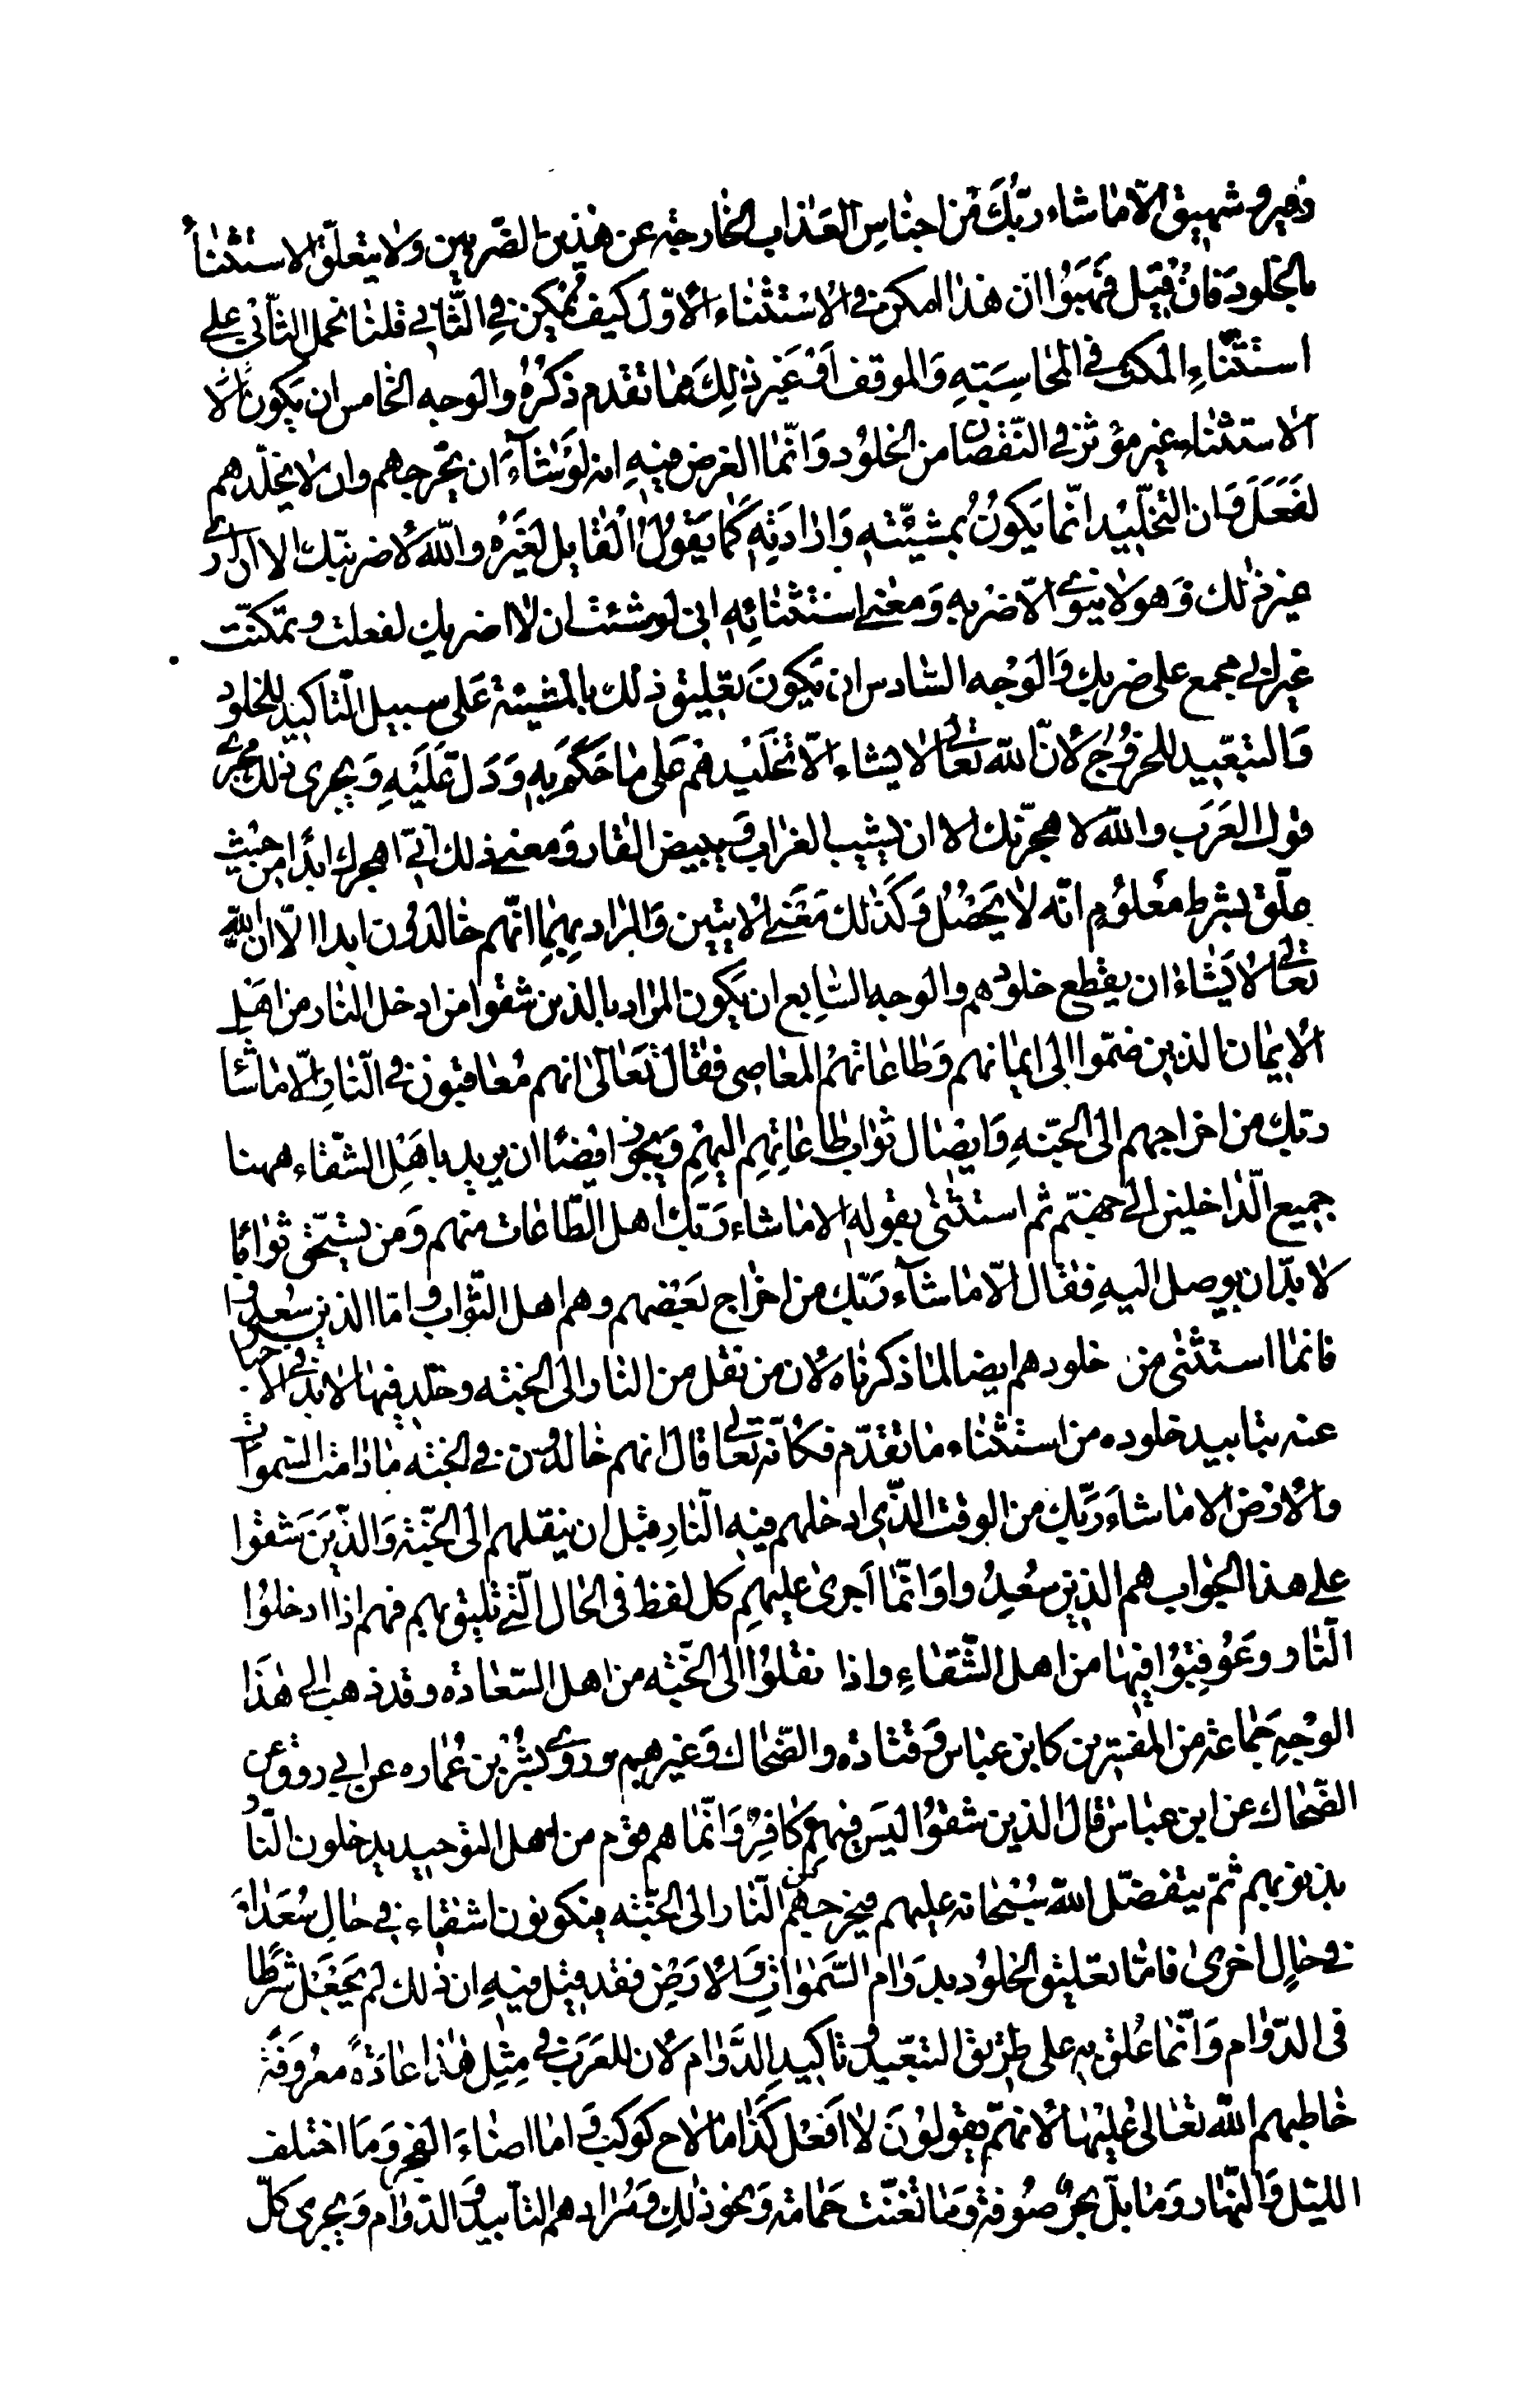 زفير و شهيق الّا ما شاء ربّك من اجناس العذاب الخارجة عن هذين الضربين ولا يتعلّق الاستثناء
بالخلود فان قيل فهبوا ان هذا امكن في الاستثناء الاوّل كيف يمكن في الثاني قلنا نحمل الثاني على
استثناء المكث في المحاسبة والموقف او غير ذلك مما تقدم ذكره والوجه الخامس ان يكون الّا
الاستثناء غير مؤثر في النقصان من الخلود وانّما الغرض فيه انه لو شاء ان يخرجهم وان لا يخلّدهم
لفعل وان التخليد انّما يكون بمشيّته وارادته كما يقول القايل لغيره والله لاضربنّك الا ان ارى
غير ذلك وهو لا ينوى الّا ضربه ومعنى استثنائه اني لو شئت ان لا اضربك لفعلت وتمكنت
غير انى مجمع على ضربك والوجه السادس ان يكون تعليق ذلك بالمشيئة على سبيل التاكيد للخلود
والتبعيد للخروج لانّ الله تعالى لا يشاء الّا تخليدهم على ما حكم به ودلّ عليه ويجرى ذلك مجرى
قول العرب والله لاهجرنّك الا ان يشيب الغراب ويبيض القار ومعنى ذلك انّى اهجرك ابدًا من حيث
علّق بشرط معلوم انّه لا يحصل وكذلك معنى الايتين والمراد بهما انّهم خالدون ابدا الّا ان الله
تعالى لا يشاء ان يقطع خلودهم والوجه السابع ان يكون المراد بالذين شقوا من ادخل النار من اهل
الايمان الذين ضمّوا الى ايمانهم وطاعاتهم المعاصى فقال تعالى انهم معاقبون في النار الّا ما شا
ربّك من اخراجهم الى الجنّة وايصال ثواب طاعاتهم اليهم ويجوز ايضًا ان يريد باهل الشقاء ههنا
جميع الداخلين الى جهنّم ثم استثنى بقوله الا ما شاء ربّك اهل الطّاعات منهم ومن يستحق ثوابًا
لا بدّ ان يوصل اليه فقال الّا ما شاء ربّك من اخراج بعضهم وهم اهل الثواب و امّا الذين سعدوا
فانما استثنى من خلودهم ايضا لما ذكرناه لان من نقل من النار الى الجنة وخلد فيها لا بدّ في الاخبار
عنه بتابيد خلوده من استثناء ما تقدّم فكانّه تعالى قال انهم خالدون في الجنة ما دامت السموات
والارض الا ما شاء ربّك من الوقت الذى ادخلهم فيه النار قبل ان ينقلهم الى الجنّة والذين شقوا
على هذا الجواب هم الذين سعدوا وانّما اجرى عليهم كل لفظ في الحال الّتى تليق بهم فهم اذا ادخلوا
النار وعوقبوا فيها من اهل الشّقاء واذا نقلوا الى الجنّة من اهل السّعادة وقد ذهب الى هذا
الوجه جماعة من المفسّرين كابن عباس وقتاده والضّحاك وغيرهم وروى بشر بن عماره عن ابي روق عن
الضّحاك عن ابن عباس قال الذين شقوا ليس فيهم كافر وانّما هم قوم من اهل التوحيد يدخلون النار
بذنوبهم ثمّ يتفضّل الله سبحانه عليهم فيخرجهم من النار الى الجنّة فيكونون اشقياء في حال سعداء
في حال اخرى فامّا تعليق الخلود بدوام السّموات والارض فقد قيل فيه ان ذلك لم يجعل شرطًا
فى الدّوام وانّما علق به على طريق التبعيد وتاكيد الدّوام لان للعرب في مثل هذا عادةً معروفةً
خاطبهم الله تعالى عليها لانهم يقولون لا افعل كذا ما لاح كوكب و اما اضاء الفجر وما اختلف
الليل والنهار وما بلّ بحر صوفة وما تغنّت حمامة ونحو ذلك ومرادهم التأبيد والدّوام ويجرى كلّ